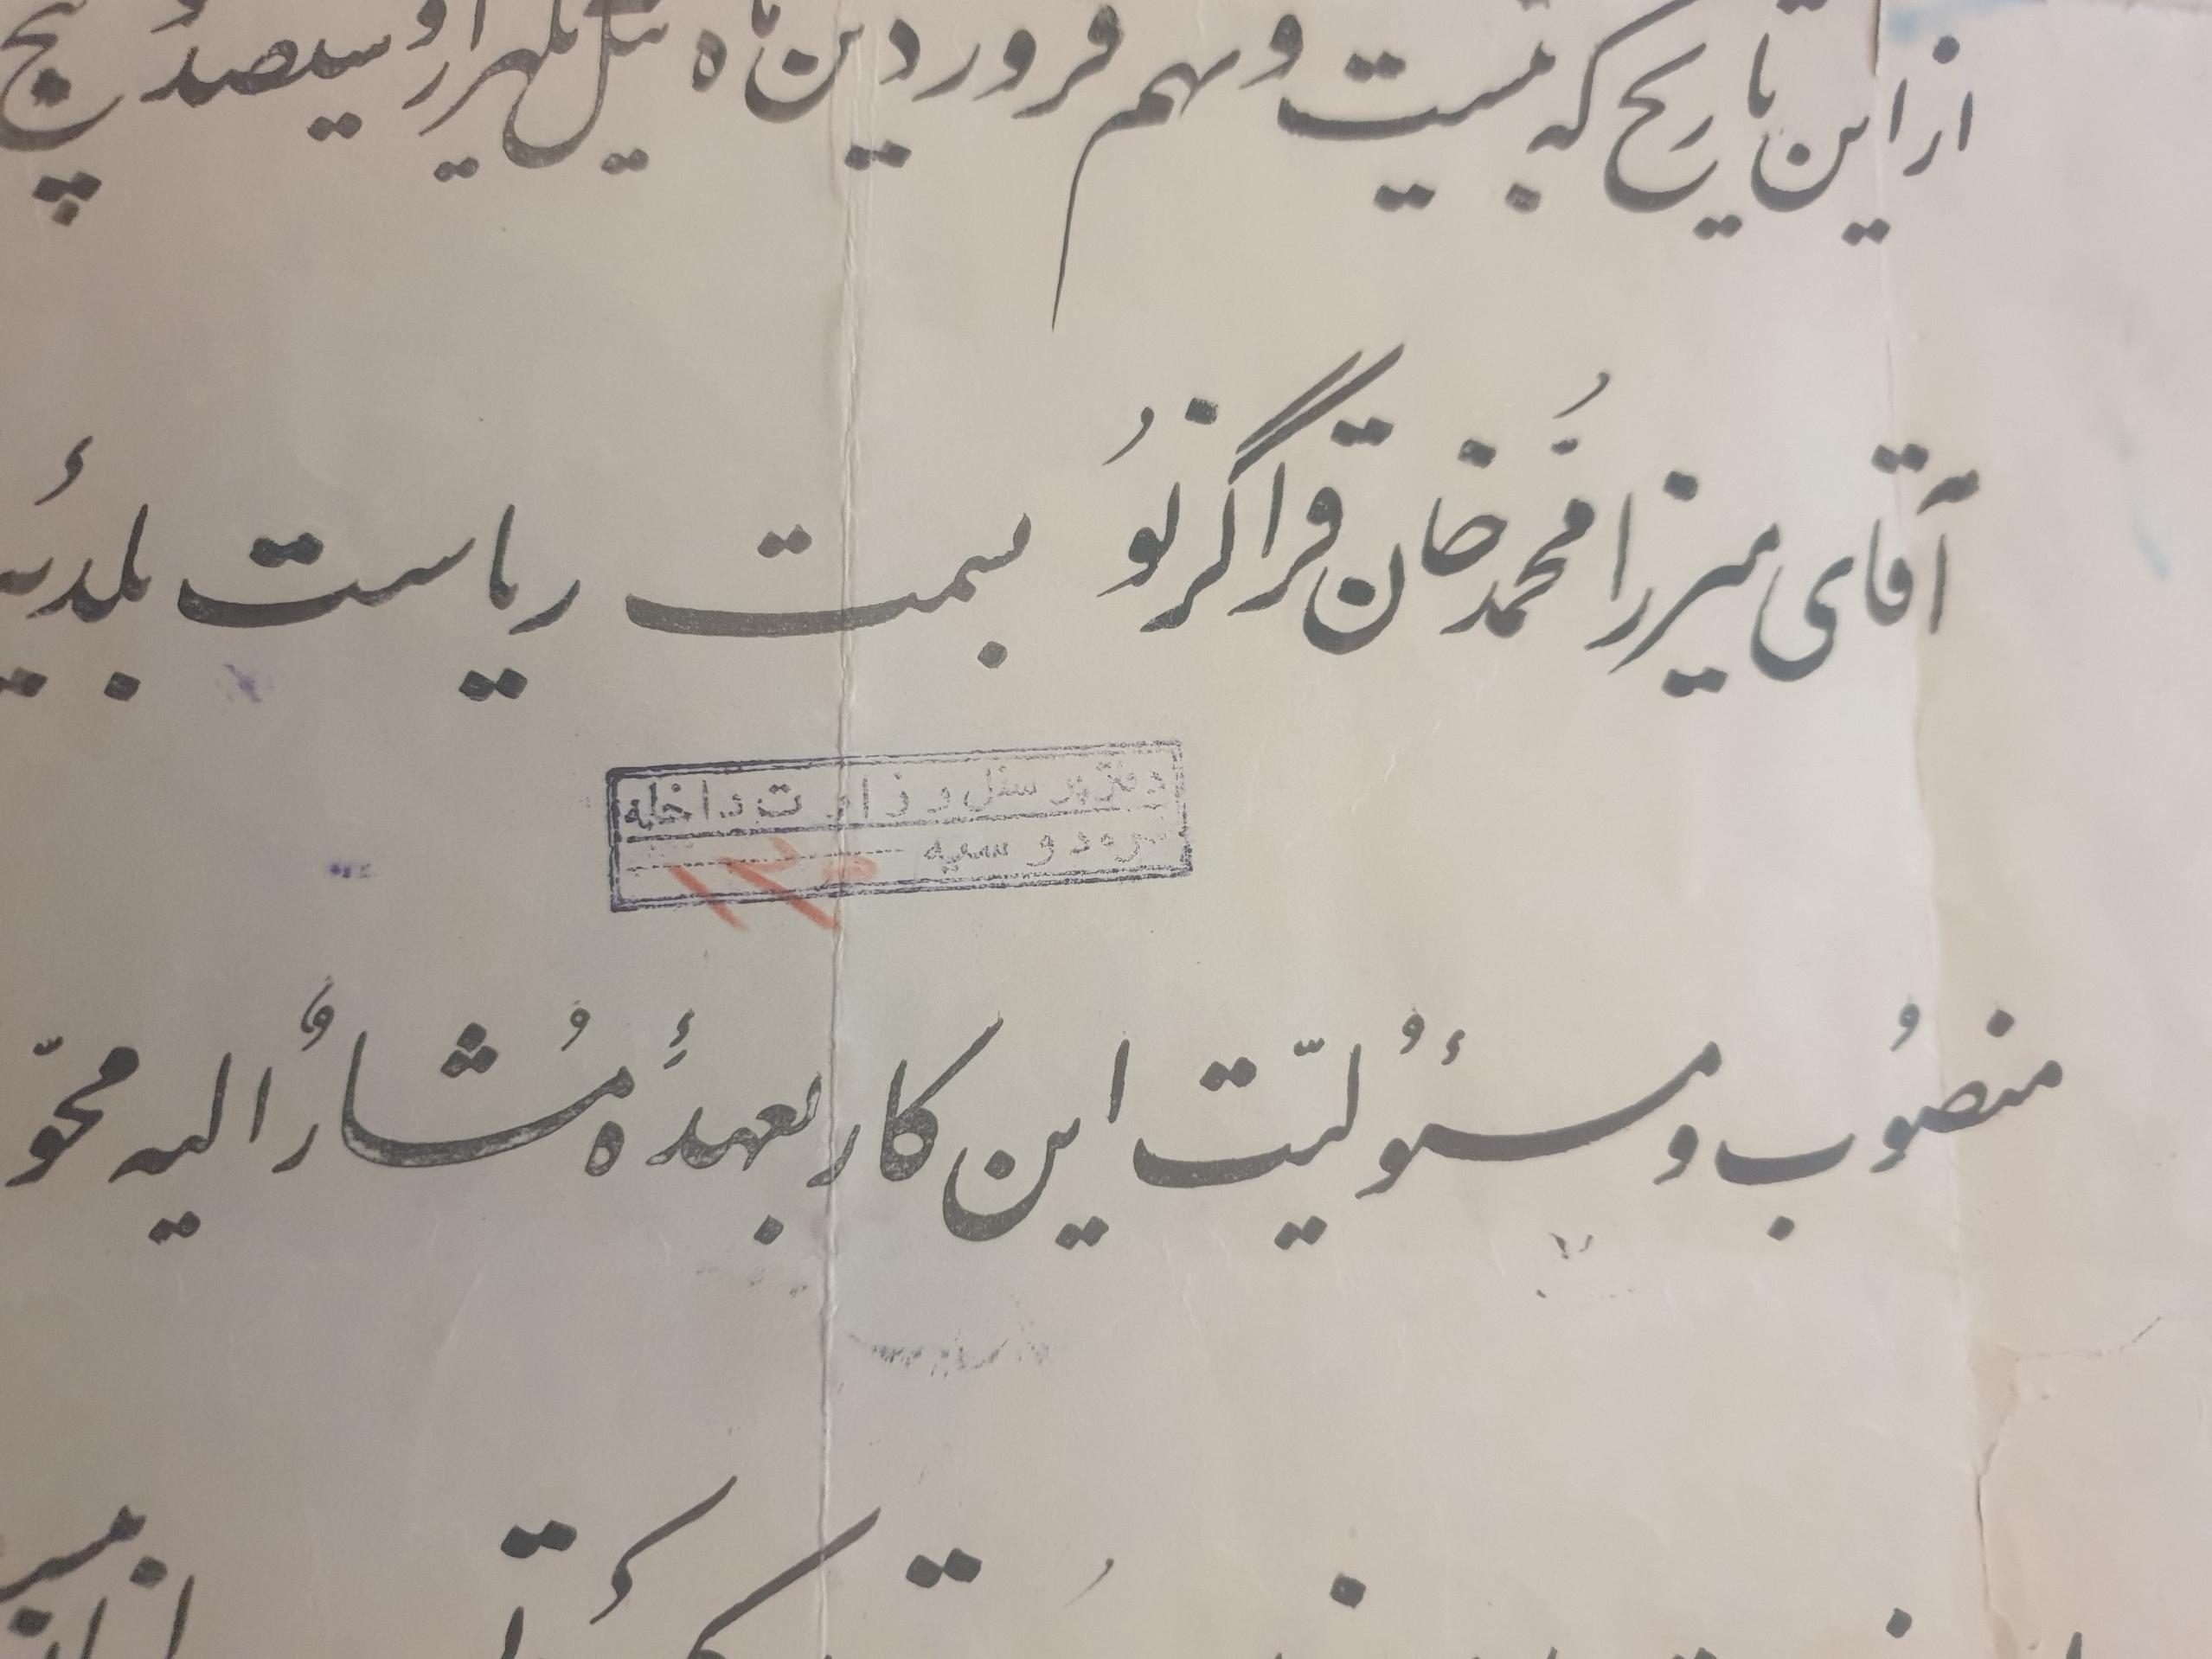 از این تاریخ که بیست و نهم فروردین ماه ئیل یکهزار و سیصد و پنج
آقای میرزا محمد خان قراگزلو بسمت ریاست بلدیه
دفتر پرسنل وزارت داخله
نمره دوسیه
منصُوب و مسئُولیّت این کار بعهدهٔ مُشارُ الیه محوّ